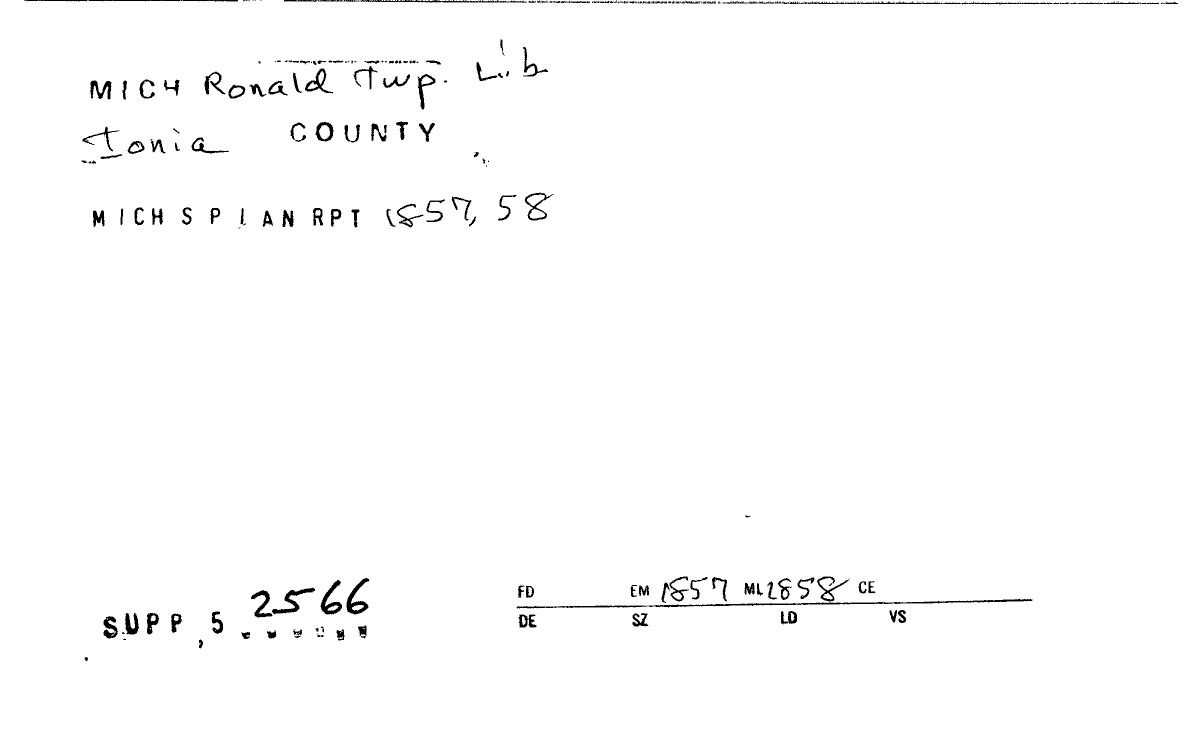 MICH Ronald Twp. Lib
Ionia COUNTY
MICH S P L AN RPT 1857, 58
SUPP, 5 2566
FD EM 1857 ML 1858 CE
DE SZ LD VS